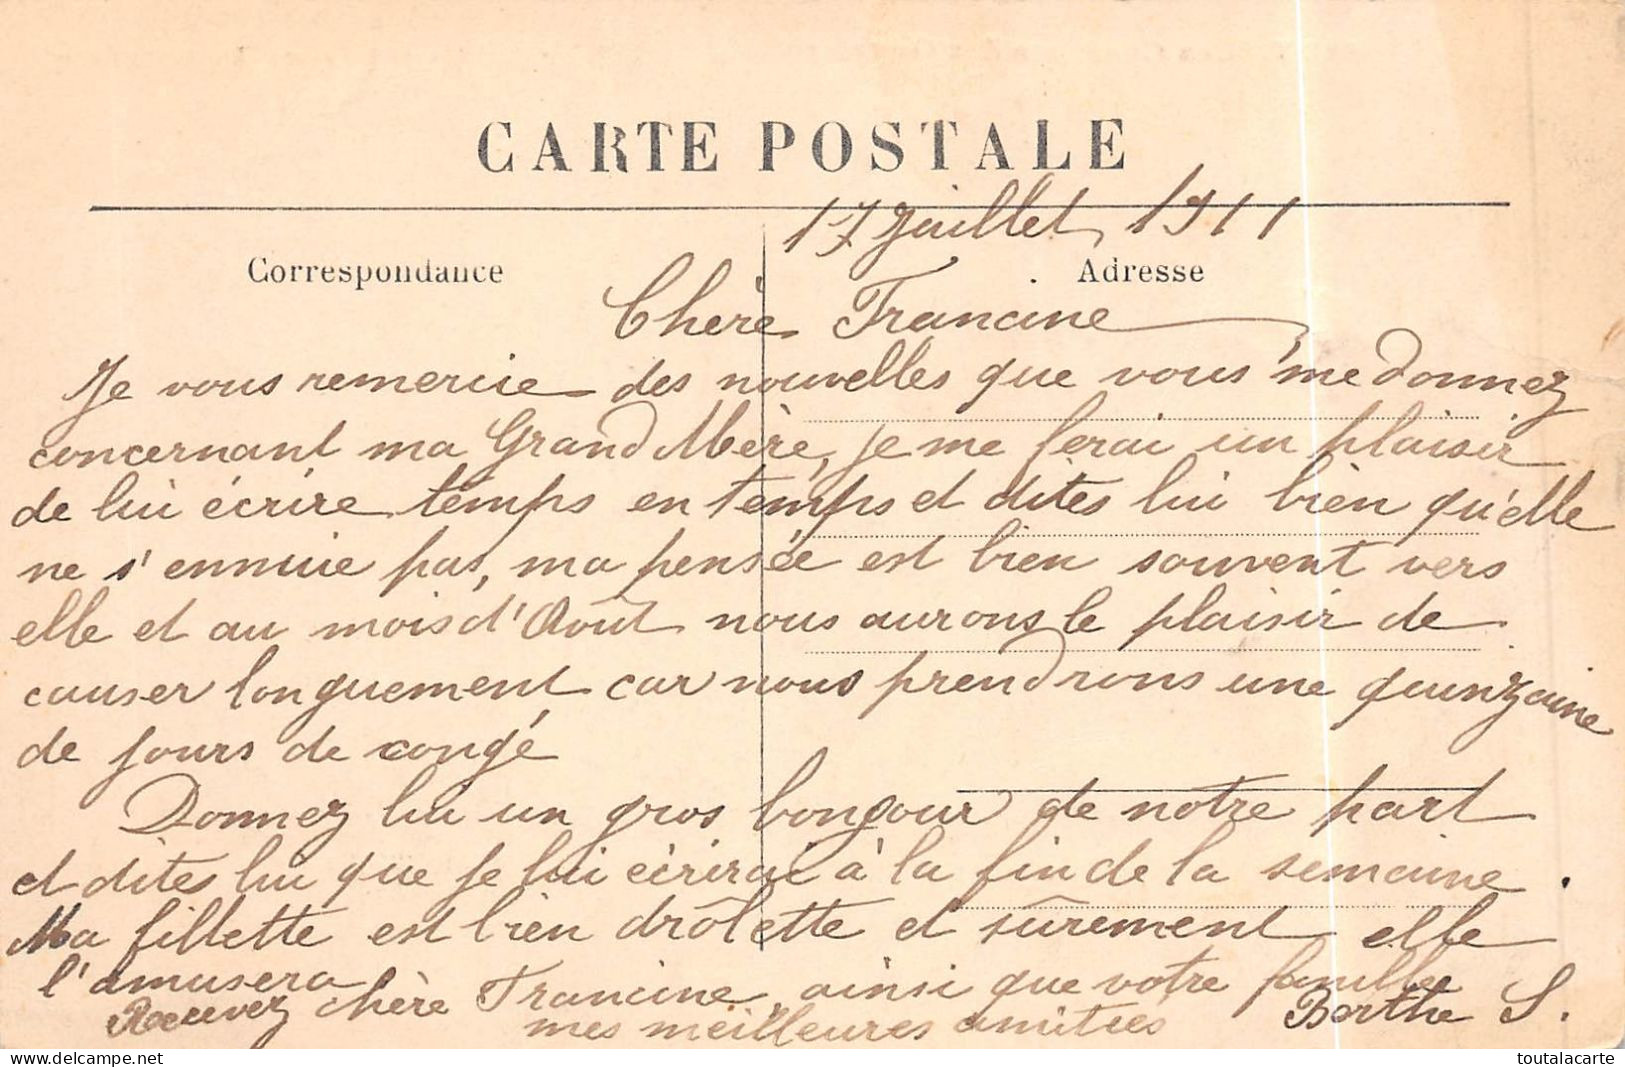 CARTE POSTALE
17 Juillet 1911
Correspondance
Adresse
Chère Francine
Je vous remercie des nouvelles que vous me donnez
concernant ma Grand Mère, je me ferai un plaisir
de lui écrire temps en temps et dites lui bien qu'elle
ne s'ennuie pas, ma pensée est bien souvent vers
elle et au mois d'Août nous aurons le plaisir de
causer longuement car nous prendrons une quinzaine
de jours de congé
Donnez lui un gros bonjour de notre part
et dites lui que je lui écrirai à la fin de la semaine.
Ma fillette est bien drôlette et sûrement elle
l'amusera
Recevez chère Francine, ainsi que votre famille
mes meilleures amitiés Berthe S.
toutalacarte